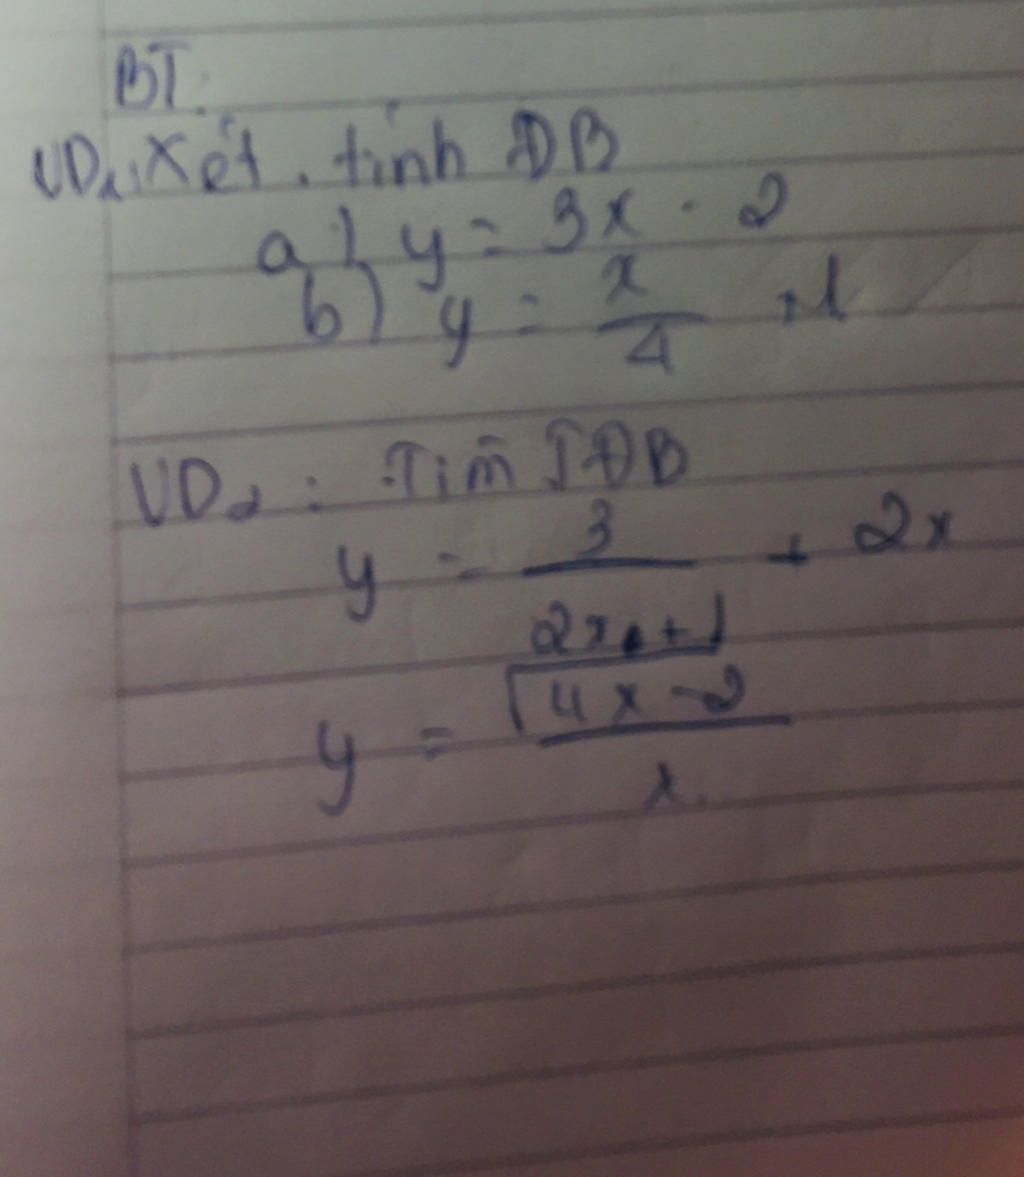 BT:
VD1: Xét tính ĐB
a) y = 3x - 2
b) y = x/4 + 1
VD2: Tìm TĐB
y = 3/(2x+1) + 2x
y = √(4x-2)/x